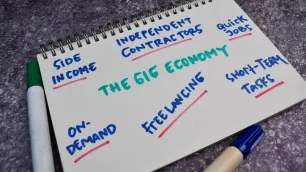 SIDE
INCOME
INDEPENDENT
CONTRACTORS
QUICK
JOBS
THE GIG ECONOMY
ON-
DEMAND
FREELANCING
SHORT-TERM
TASKS